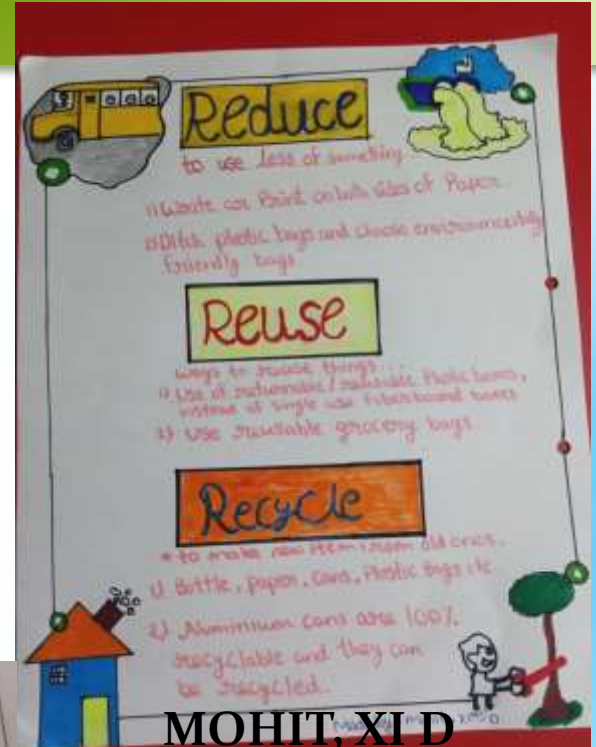 Reduce
to use less of something
1) Write or Print on both sides of Paper
2) Ditch plastic bags and choose environmentally
friendly bags
Reuse
ways to reuse things...
1) Use of returnable / reusable Plastic boxes,
instead of single use fiberboard boxes
2) Use reusable grocery bags.
Recycle
* to make new item from old ones.
1) Bottle, paper, Cans, Plastic Bags etc
2) Aluminium cans are 100%
recyclable and they can
be recycled.
MOHIT, XI D